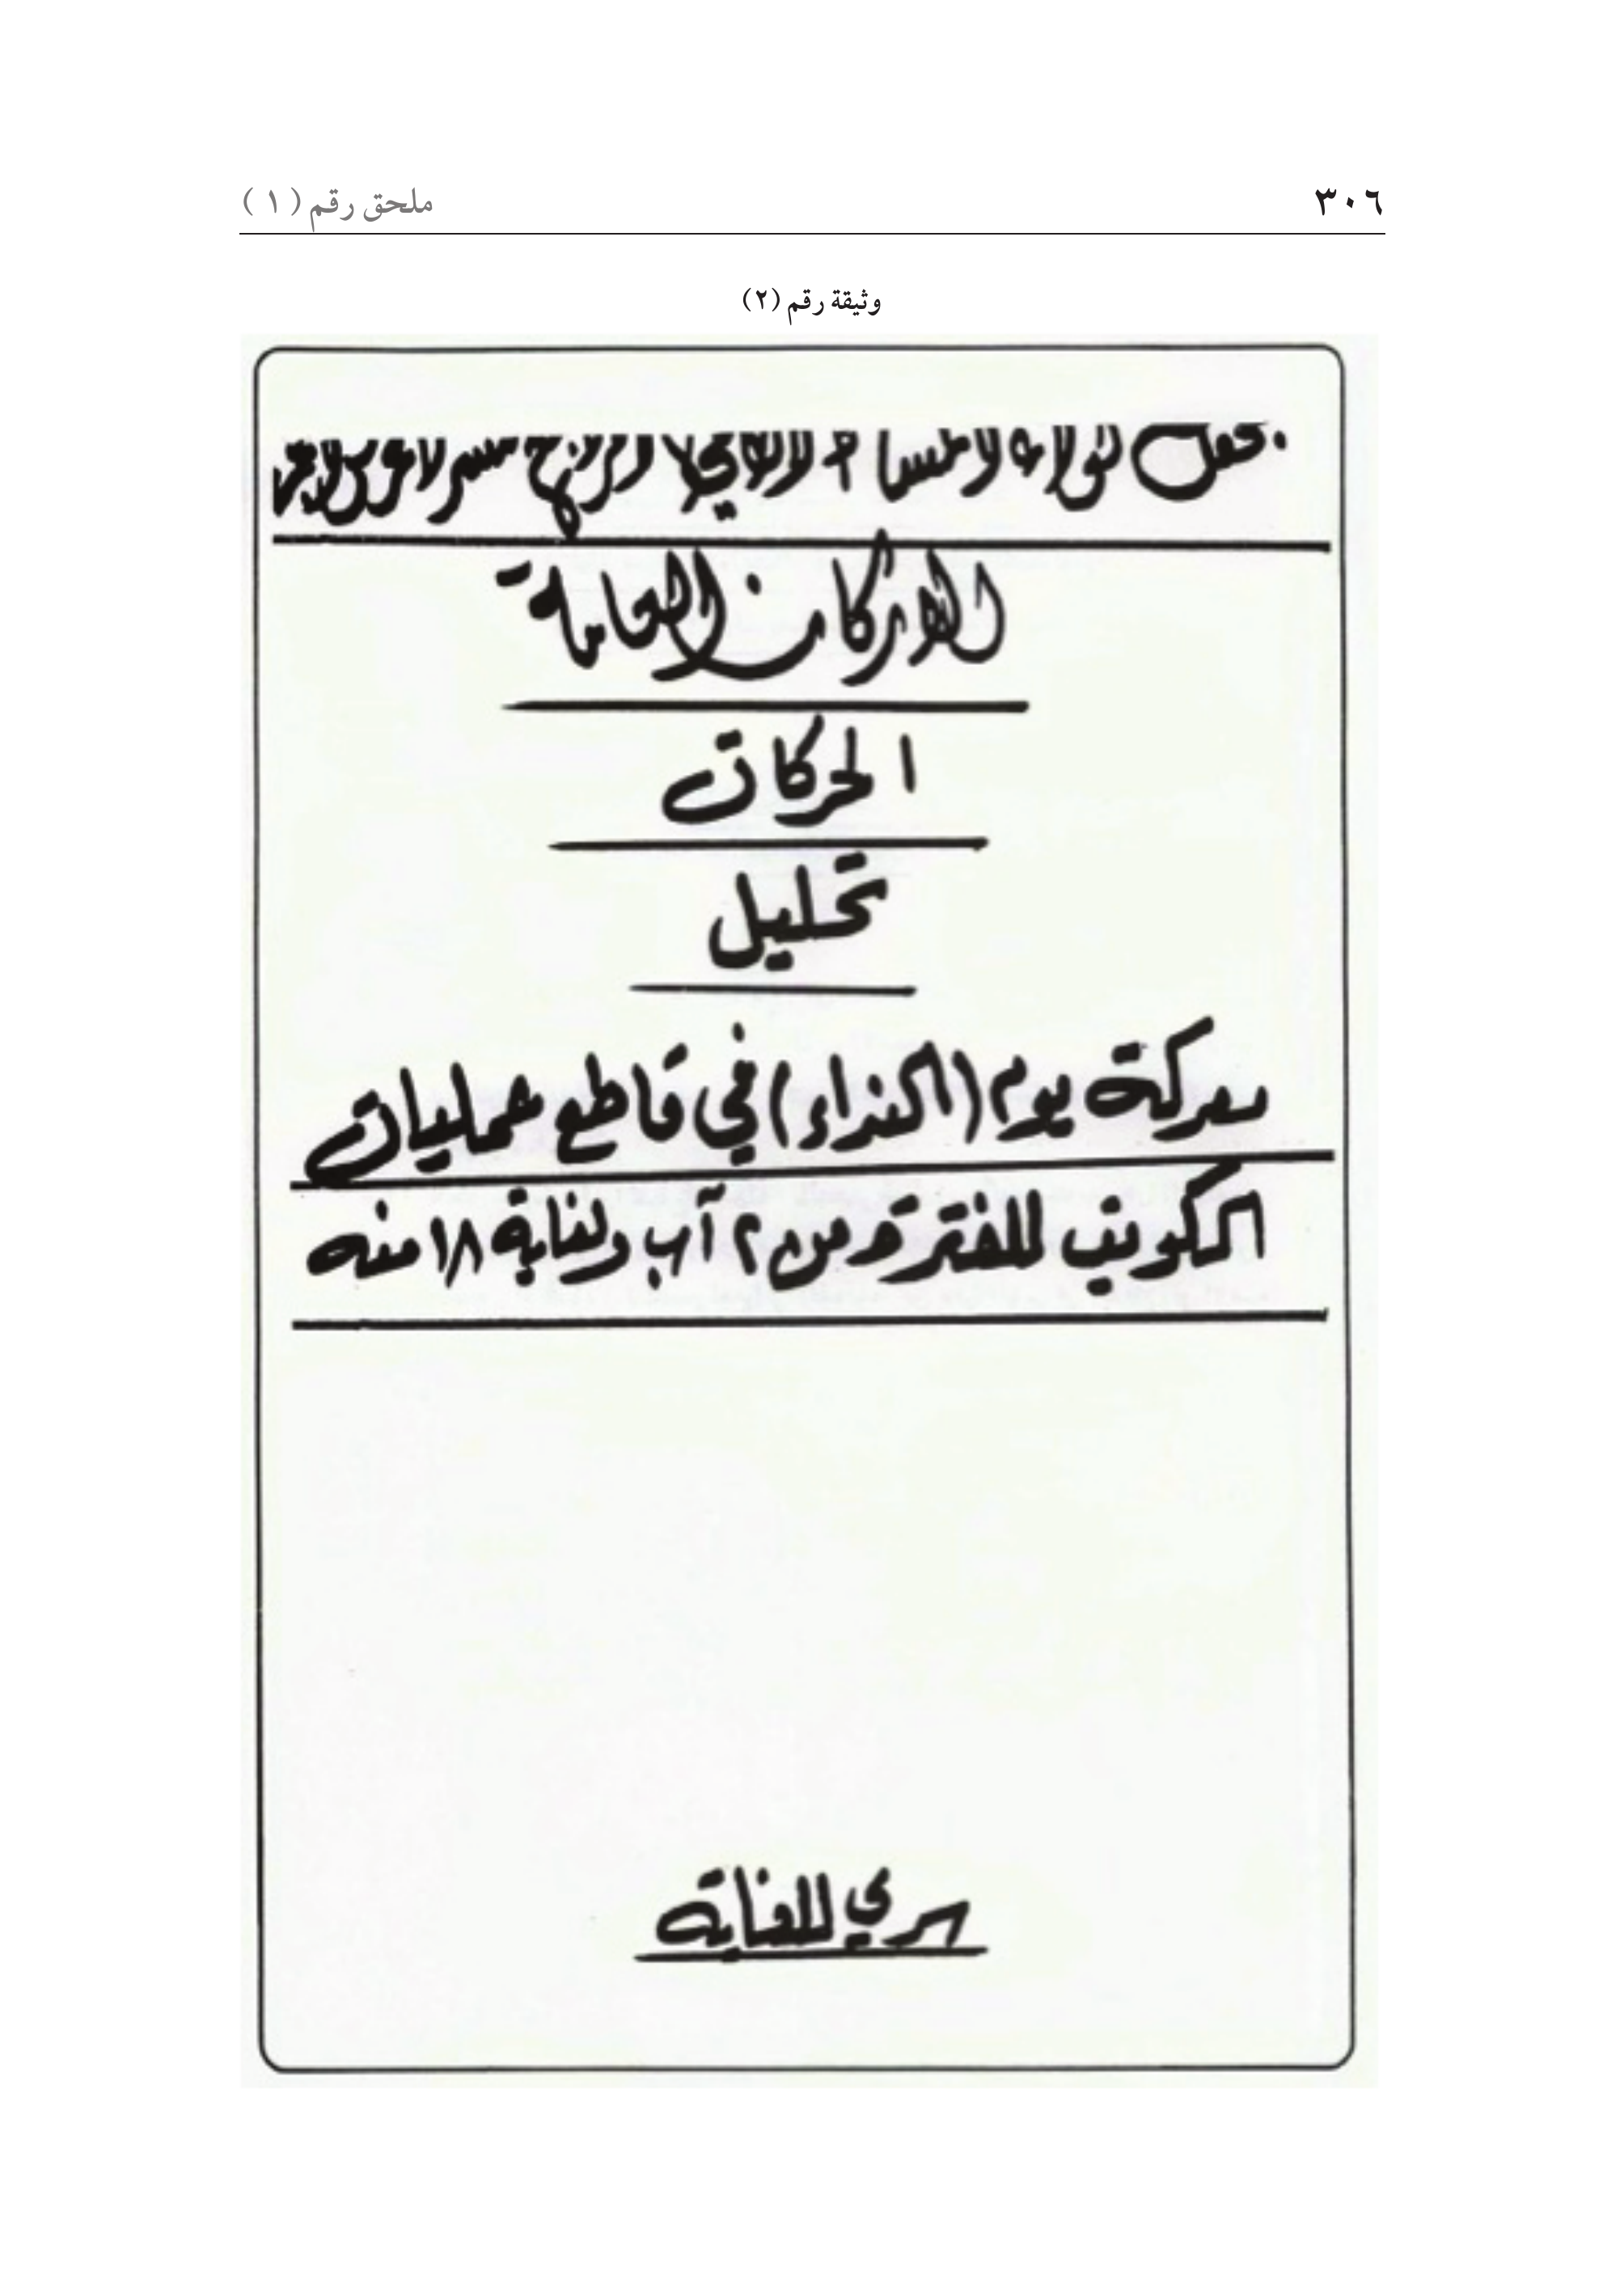 ٣٠٦
ملحق رقم (١)
وثيقة رقم (٢)
الاركان العامة
الحركات
تحليل
معركة يوم (النداء) في قاطع عمليات
الكويت للفترة من ٢ آب ولغاية ١٨ منه
سري للغاية